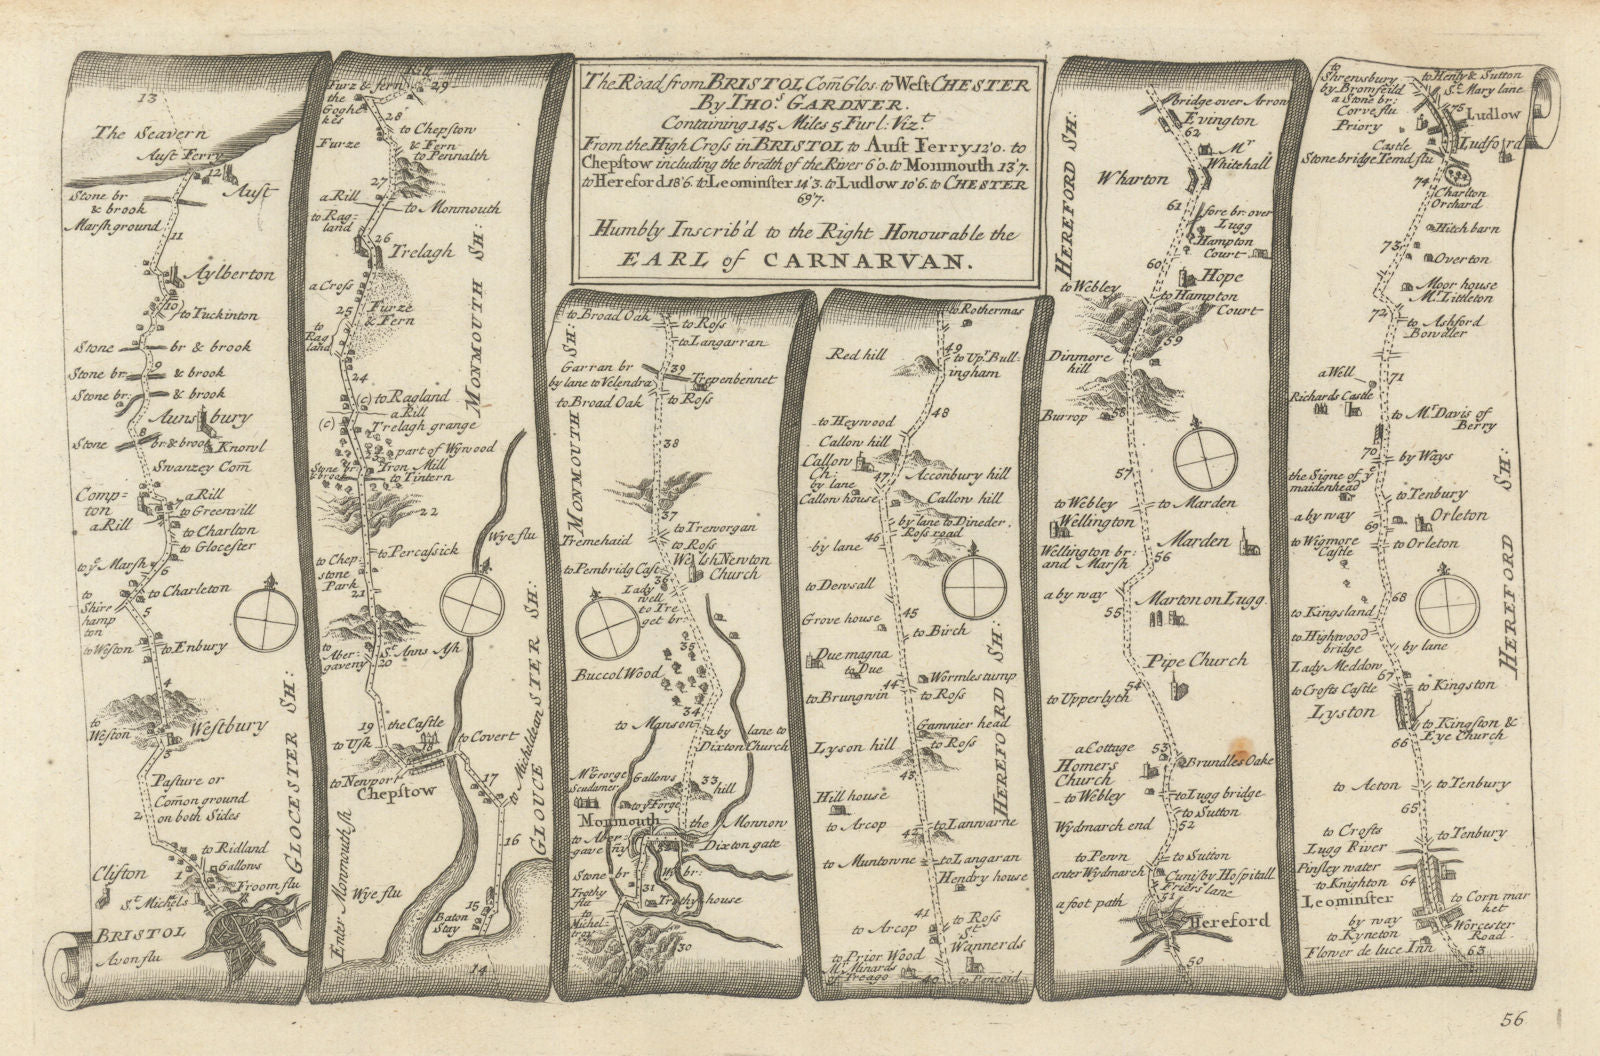 The Road from BRISTOL Com̃ Glos. to West CHESTER
By THOS. GARDNER.
Containing 145 Miles 5 Furl: Vizt.
From the High Cross in BRISTOL to Aust Ferry 12'0. to
Chepstow including the bredth of the River 6'0. to Monmouth 13'7.
to Hereford 18'6. to Leominster 14'3. to Ludlow 10'6. to CHESTER
69'7.
Humbly Inscrib'd to the Right Honourable the
EARL of CARNARVAN.
13
The Seavern
Aust Ferry
12
Aust
Stone br
& brook
Marsh ground
11
Aylberton
10
to Tuckinton
Stone br & brook
Stone br. & brook
9
Stone br: & brook
Aunsbury
8
Stone br & brook
Knowl
Swanzey Com̃
Compton
a Rill
7
to Greenvill
a Rill
to Charlton
to Glocester
to ye Marsh
6
to Charleton
to Shire hampton
5
to Weston
to Enbury
4
to Weston
Westbury
3
Pasture or
Com̃on ground
on both Sides
2
to Ridland
Gallows
1
Clifton
Froom flu
St. Michls
BRISTOL
Avon flu
GLOCESTER SH:
29
Furz & fern
the Goghekes
28
to Chepstow
& Fern
to Pennalth
Furze
27
a Rill
to Monmouth
to Ragland
26
Trelagh
a Cross
25
Furze
& Fern
to Ragland
24
(c) to Ragland
a Rill
(c)
Trelagh grange
part of Wywood
Stone br
& brook
Iron Mill
to Tintern
22
to Chepstone Park
to Percassick
21
to Abergaveny
St. Anns Ash
20
19
the Castle
to Usk
18
to Covert
to Newport
Chepstow
17
to Micheldean
16
Wye flu
Wye flu
15
Baton Stay
14
Enter Monmouth sh
MONMOUTH SH:
GLOUCESTER SH:
to Broad Oak
to Ross
to Langarran
Garran br
39
by lane to Velendra
Trepenbennet
to Broad Oak
to Ross
38
37
Tremehaid
to Treworgan
to Ross
Welsh Newton
Church
to Pembridg Cast
36
Lady well
to Treget br:
35
Buccol Wood
34
to Manson
a by lane to
Dixton Church
Mr. George
Scudamer
Gallows
33
hill
to ye Forge
Monmouth
the Monnow
to Abergaveny
Dixton gate
Stone br
Wye br:
31
Trothy flu
Trothy house
to Micheltroy
30
MONMOUTH SH:
MONMOUTH SH:
to Rothermas
49
Red hill
to Upr. Bullingham
48
to Heywood
Callow hill
Callow Ch:
Acconbury hill
by lane
47
Callow house
Callow hill
by lane to Dineder
Ross road
46
by lane
to Dewsall
45
Grove house
to Birch
Due magna
to Due
Wormlestump
to Brungwin
44
to Ross
Gamnier head
to Ross
Lyson hill
43
Hill house
to Arcop
42
to Lanwarne
to Muntowne
to Langaran
Hendry house
41
to Ross
to Arcop
St. Wannerds
to Prior Wood
Mr. Minards
of Treago
40
to Pencoid
HEREFORD SH:
bridge over Arron
Evington
62
Mr. Whitehall
Wharton
61
fore br: over
Lugg
Hampton
Court
60
Hope
to Webley
to Hampton
Court
59
Dinmore
hill
58
Burrop
57
to Webley
to Marden
Wellington
Marden
Wellington br:
and Marsh
56
a by way
Marton on Lugg
55
Pipe Church
54
to Upperlyth
a Cottage
53
Homers
Church
Brundles Oake
to Webley
to Lugg bridge
to Sutton
Wydmarch end
52
to Penn
to Sutton
enter Wydmarch
Cunisby Hospitall
Friers lane
a foot path
51
Hereford
50
HEREFORD SH:
to Shrewsbury
by Bromfeild
to Henly & Sutton
St. Mary lane
a Stone br:
Corve flu
75
Ludlow
Priory
Castle
Ludford
Stone bridge Temd flu
74
Charlton
Orchard
Hitch barn
73
Overton
Moor house
Mr. Littleton
72
to Ashford
Bowdler
71
a Well
Richards Castle
to Mr. Davis of
Berry
70
by Ways
the Signe of ye
maidenhead
to Tenbury
a by way
Orleton
69
to Wigmore
Castle
to Orleton
68
to Kingsland
to Highwood
bridge
by lane
Lady Meddow
67
to Crofts Castle
to Kingston
Lyston
to Kingston &
Eye Church
66
to Acton
to Tenbury
65
to Crofts
to Tenbury
Lugg River
Pinsley water
64
to Knighton
Leominster
to Corn market
by way
to Kyneton
Worcester
Road
Flower de luce Inn
63
HEREFORD SH:
56